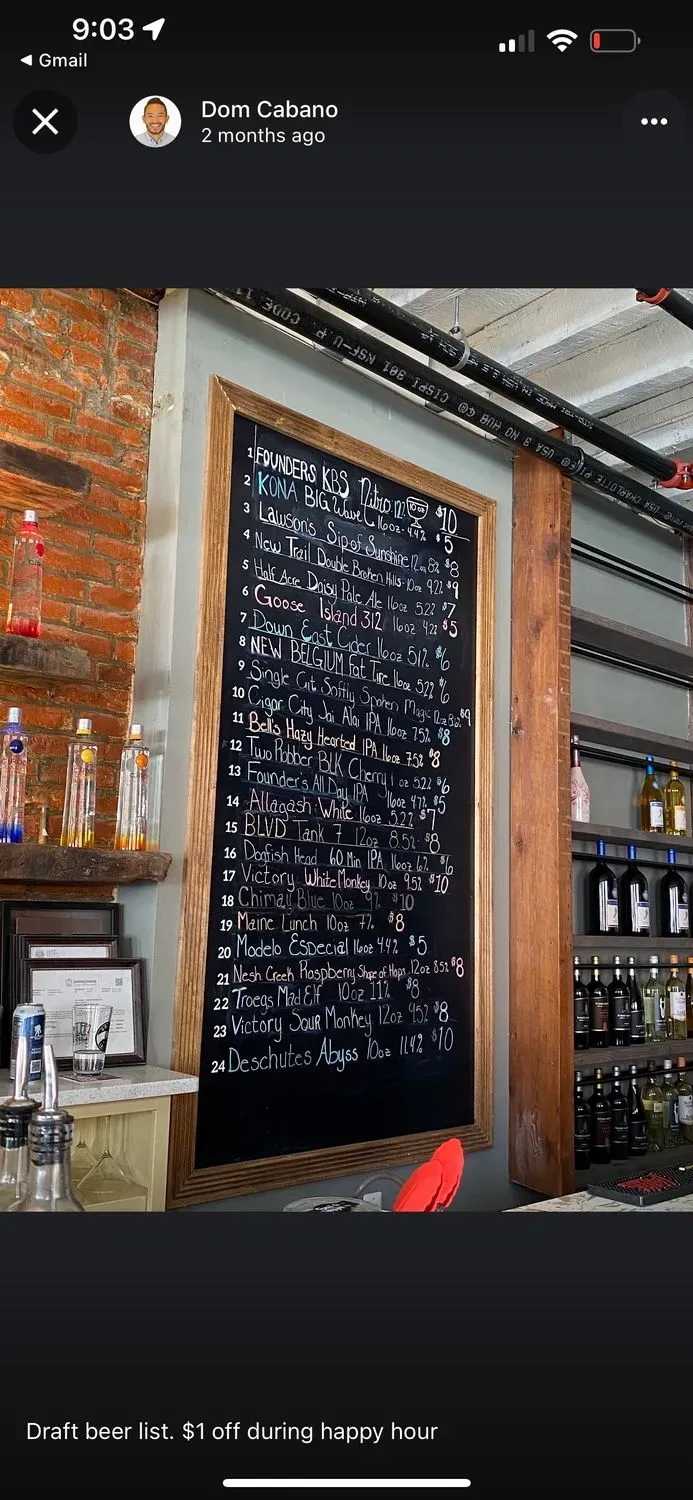 9:03
◀ Gmail
Dom Cabano
2 months ago
CODE 11
NSF-U-P
CISPI 301
® NO HUB CO 3 USA
CHARLOTTE
1 FOUNDERS KBS Nitro 12% 10oz $10
2 KONA BIG Wave 16oz - 4.4% $5
3 Lawson's Sip of Sunshine 12oz 8% $8
4 New Trail Double Broken Hills - 10oz 9.2% $9
5 Half Acre Daisy Pale Ale 16oz 5.2% $7
6 Goose Island 312 16oz 4.2% $5
7 Down East Cider 16oz 5.1% $6
8 NEW BELGIUM Fat Tire 16oz 5.2% $6
9 Single Cut Softly Spoken Magic 12oz 8.6% $9
10 Cigar City Jai Alai IPA 16oz 7.5% $8
11 Bell's Hazy Hearted IPA 16oz 7.5% $8
12 Two Robber BLK Cherry oz 5.2% $6
13 Founder's All Day IPA 16oz 4.7% $5
14 Allagash White 16oz 5.2% $7
15 BLVD Tank 7 12oz 8.5% $8
16 Dogfish Head 60 Min IPA 16oz 6% $6
17 Victory White Monkey 10oz 9.5% $10
18 Chimay Blue 10oz 9% $10
19 Maine Lunch 10oz 7% $8
20 Modelo ESpecial 16oz 4.4% $5
21 Nesh Creek Raspberry Shape of Hops 12oz 8.5% $8
22 Troegs Mad Elf 10oz 11% $8
23 Victory Sour Monkey 12oz 9.5% $8
24 Deschutes Abyss 10oz 11.4% $10
Draft beer list. $1 off during happy hour